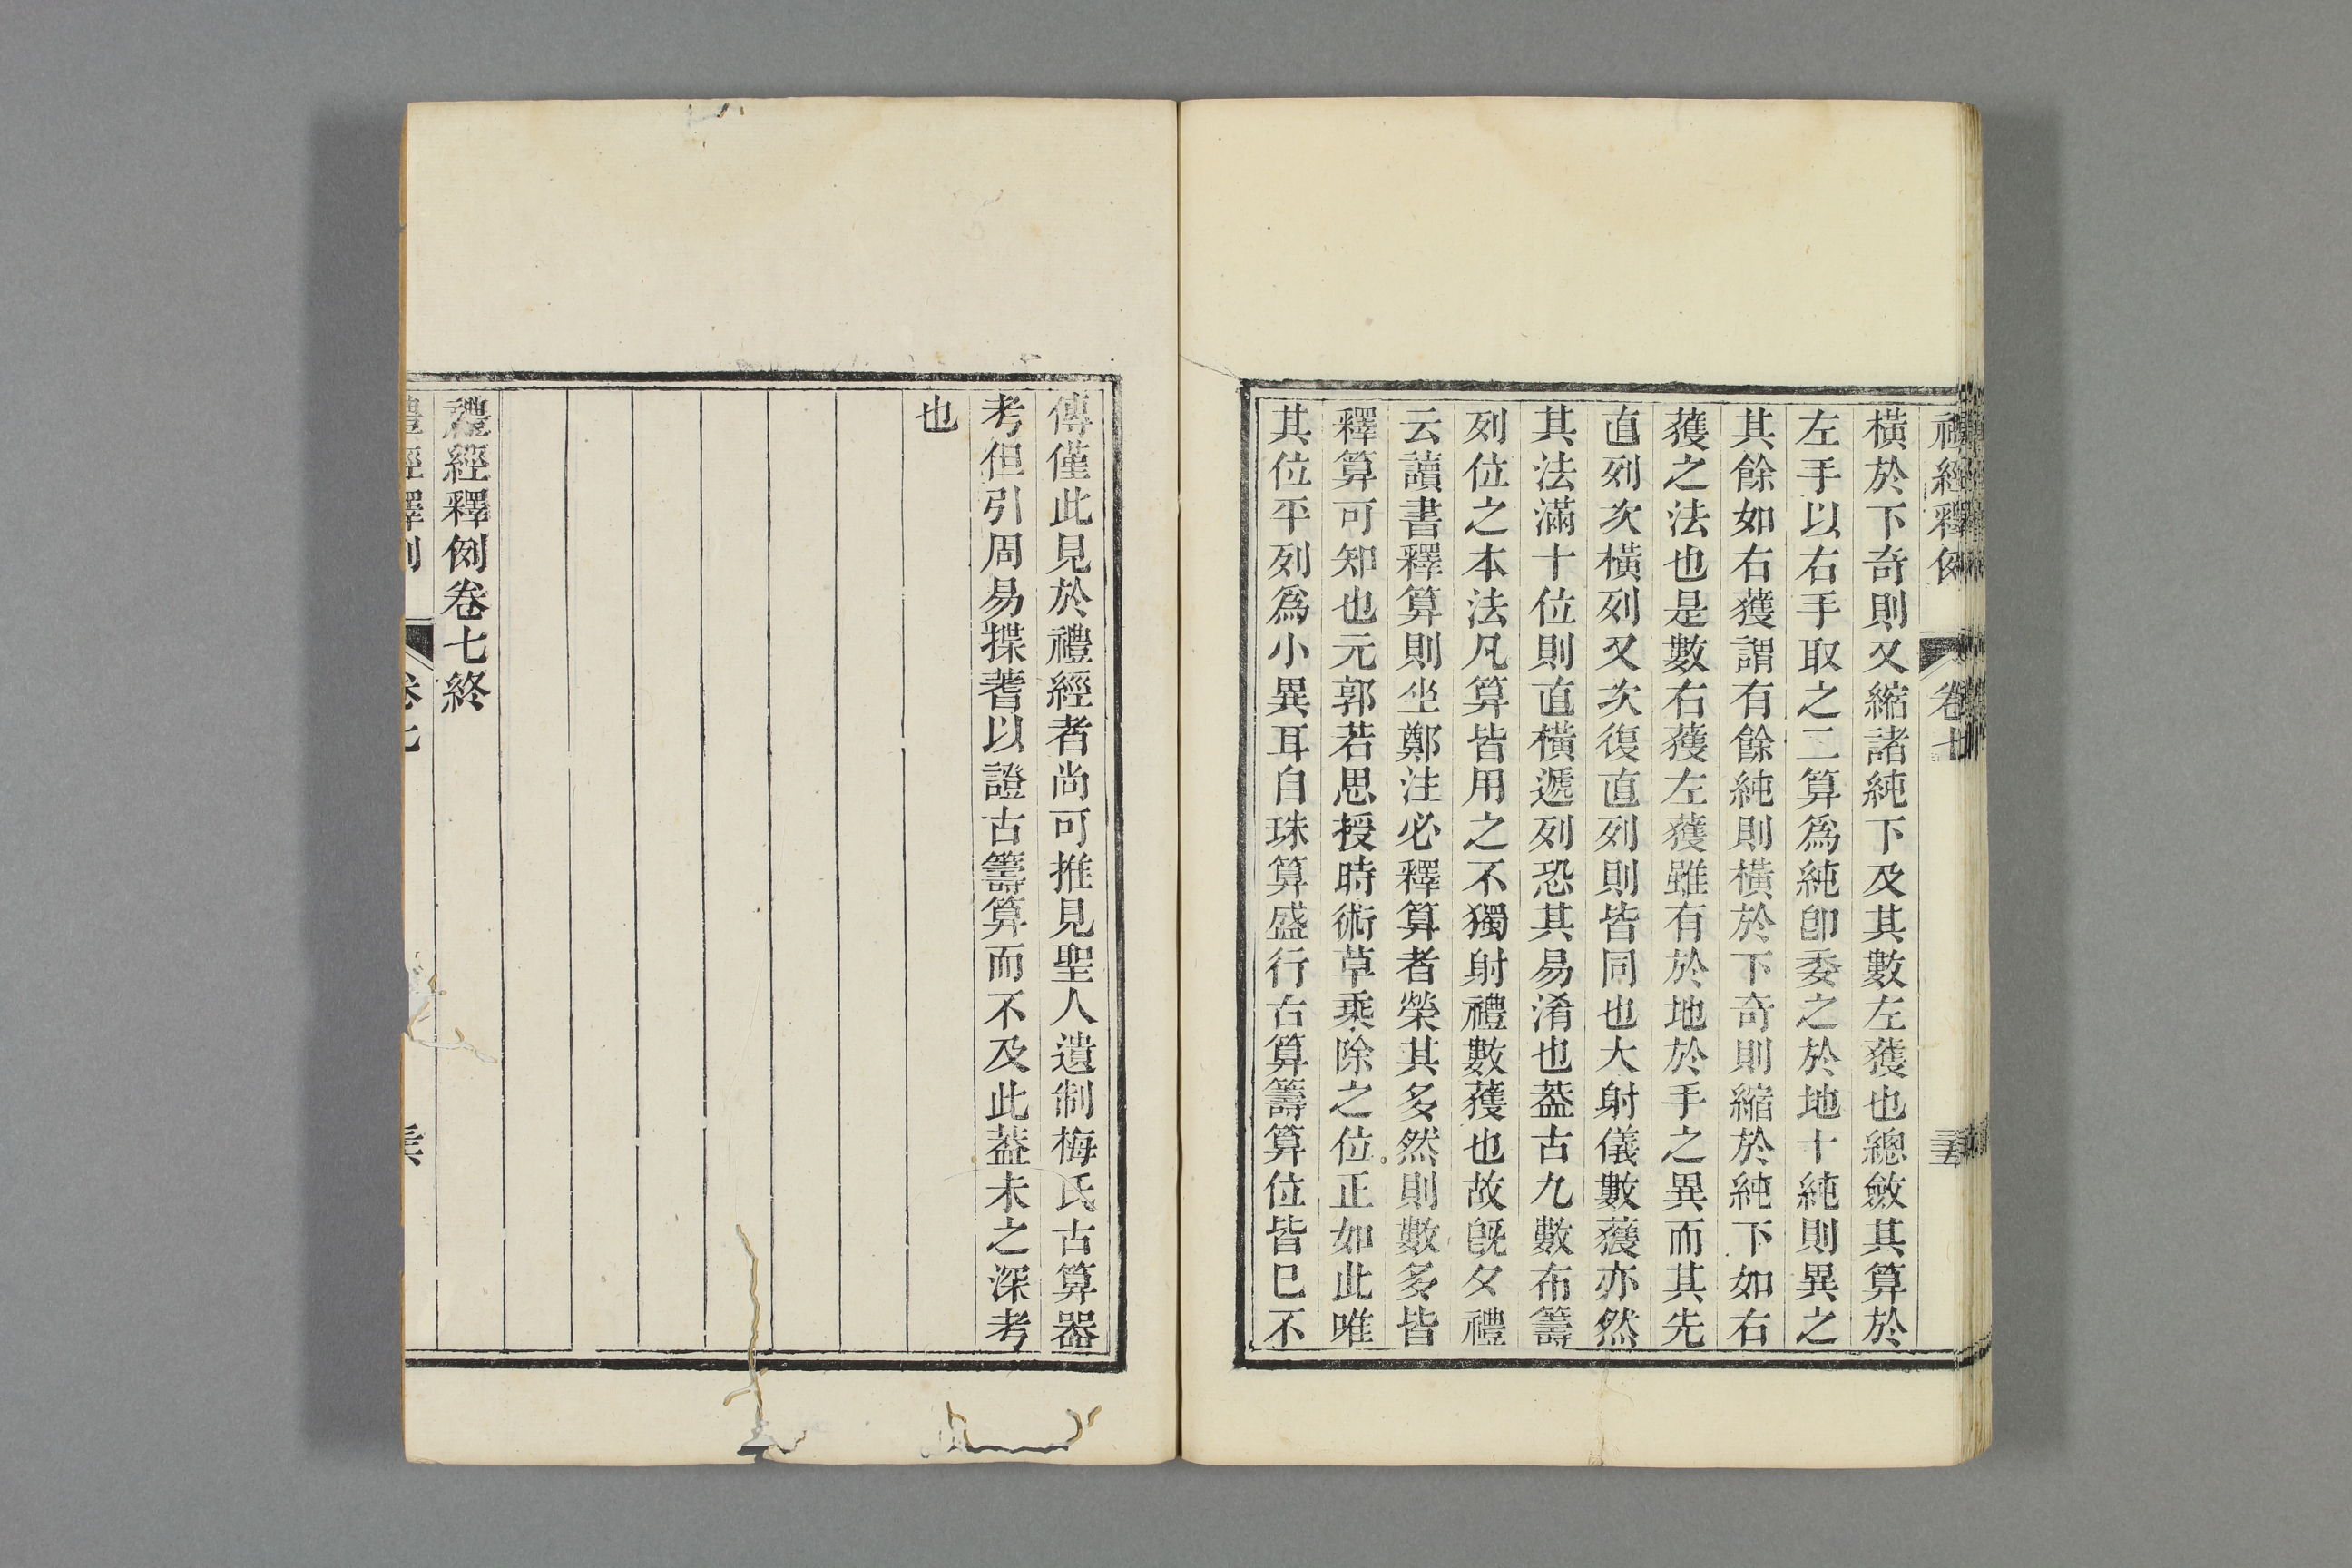 禮經釋例 卷七
橫於下奇則又縮諸純下及其數左獲也總斂其算於
左手以右手取之二算爲純卽委之於地十純則異之
其餘如右獲謂有餘純則橫於下奇則縮於純下如右
獲之法也是數右獲左獲雖有於地於手之異而其先
直列次橫列又次復直列則皆同也大射儀數獲亦然
其法滿十位則直橫遞列恐其易淆也葢古九數布籌
列位之本法凡算皆用之不獨射禮數獲也故旣夕禮
云讀書釋算則坐鄭注必釋算者榮其多然則數多皆
釋算可知也元郭若思授時術草乘除之位正如此唯
其位平列爲小異耳自珠算盛行古算籌算位皆已不
傳僅此見於禮經者尚可推見聖人遺制梅氏古算器
考但引周易揲蓍以證古籌算而不及此葢未之深考
也
禮經釋例卷七終
禮經釋例 卷七